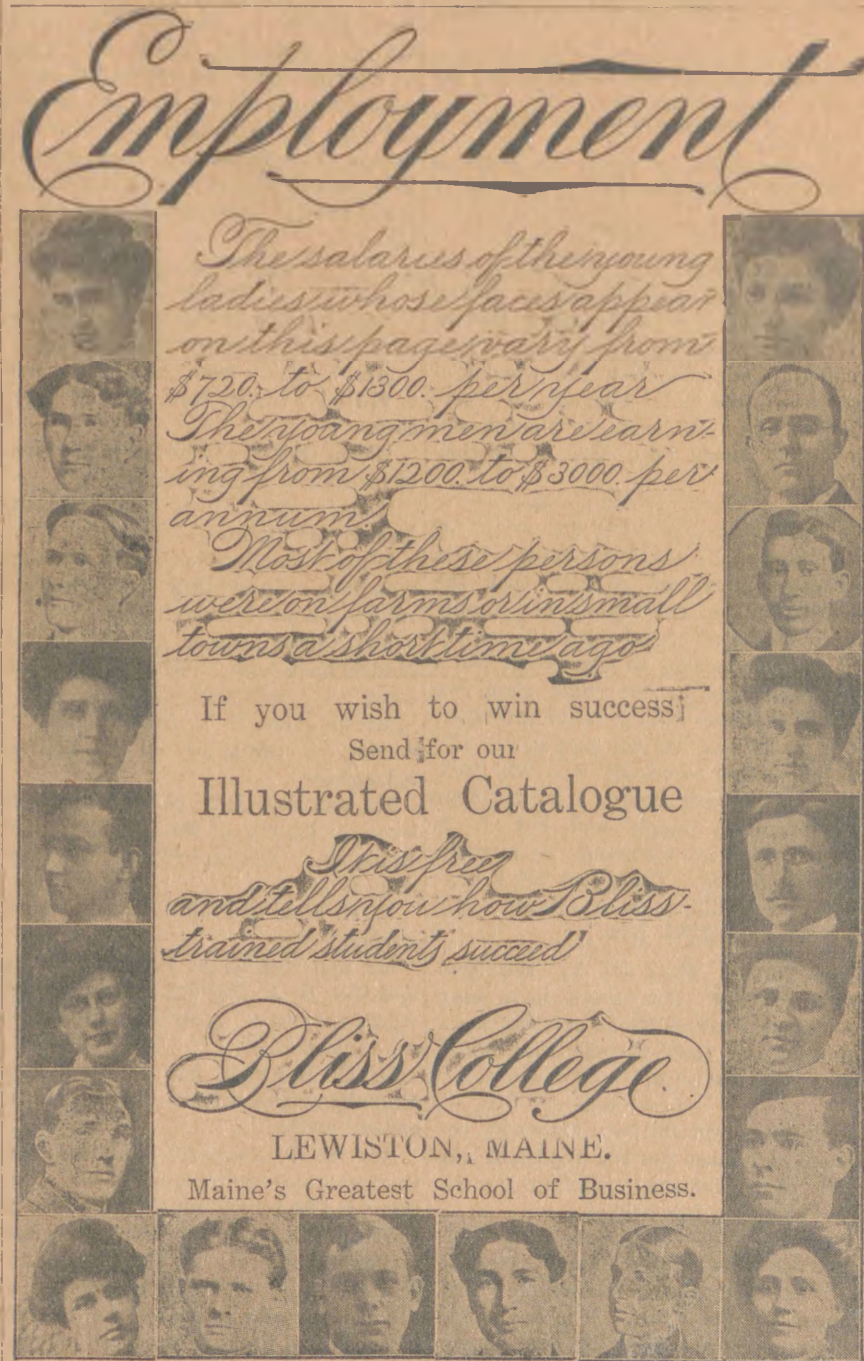 Employment
The salaries of the young
ladies whose faces appear
on this page vary from
$720. to $1300. per year
The young men are earn-
ing from $1200. to $3000. per
annum.
Most of these persons
were on farms or in small
towns a short time ago
If you wish to win success
Send for our
Illustrated Catalogue
It is free
and tells you how Bliss-
trained students succeed
Bliss College
LEWISTON, MAINE.
Maine's Greatest School of Business.